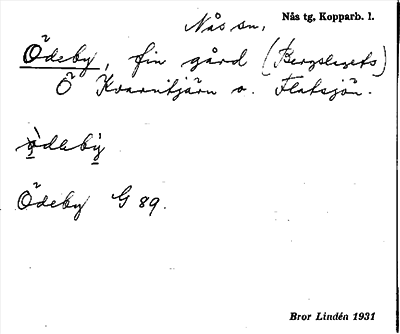 Nås sn. Nås tg, Kopparb. l.
Ödeby, fin gård (Bergslagets)
Ö Kvarntjärn o. Flatsjön.
ödebỳ
Ödeby G 89.
Bror Lindén 1931